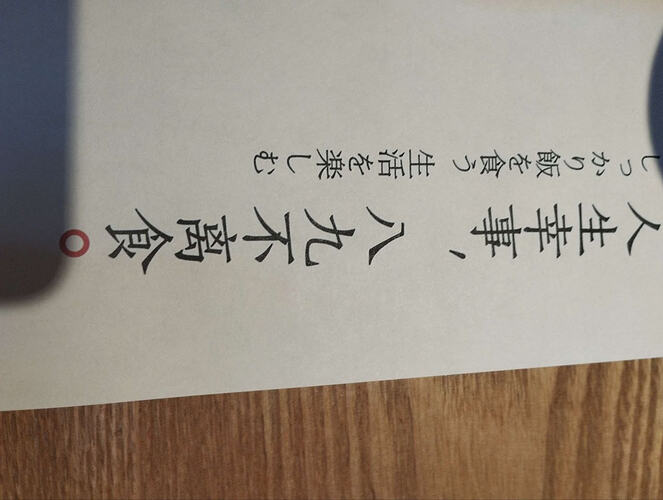 人生幸事，八九不离食。
しっかり飯を食う 生活を楽しむ